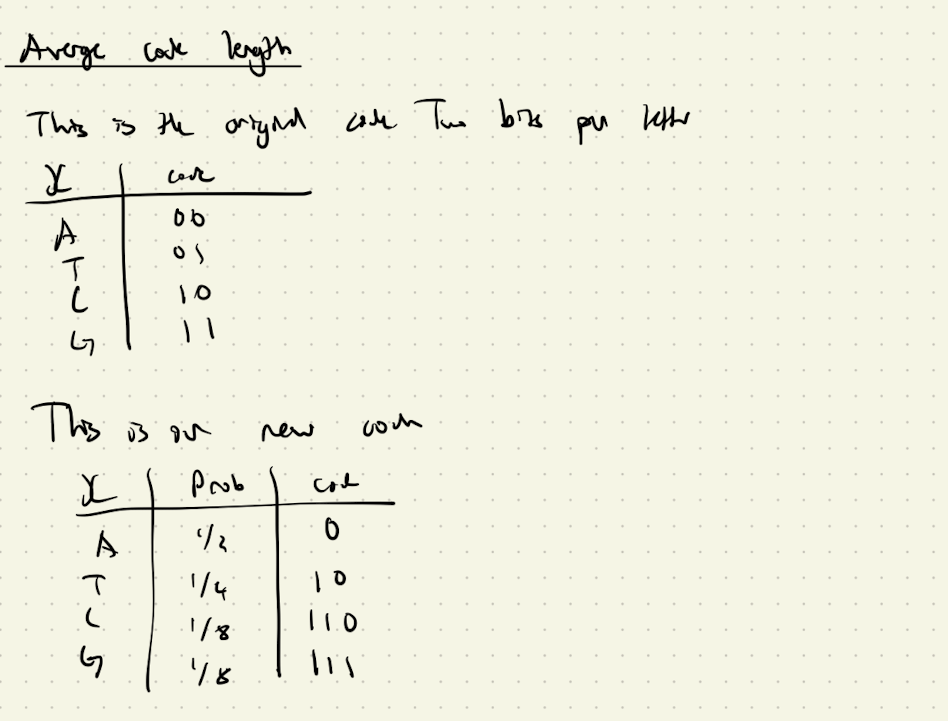 Average code length
This is the original code Two bits per letter
X code
A 00
T 01
C 10
G 11
This is our new code
X Prob code
A 1/2 0
T 1/4 10
C 1/8 110
G 1/8 111